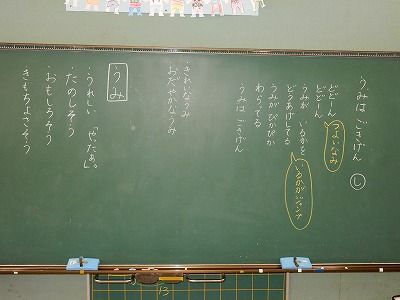 うみは ごきげん
し
どどーん
どどーん
つよいなみ
うみが いるかを
どうあげしてる
いるかがジャンプ
うみがぴかぴか
わらってる
うみは ごきげん
・きれいなうみ
・おだやかなうみ
うみ
・うれしい「やたぁ。」
・たのしそう
・おもしろそう
・きもちよさそう
13